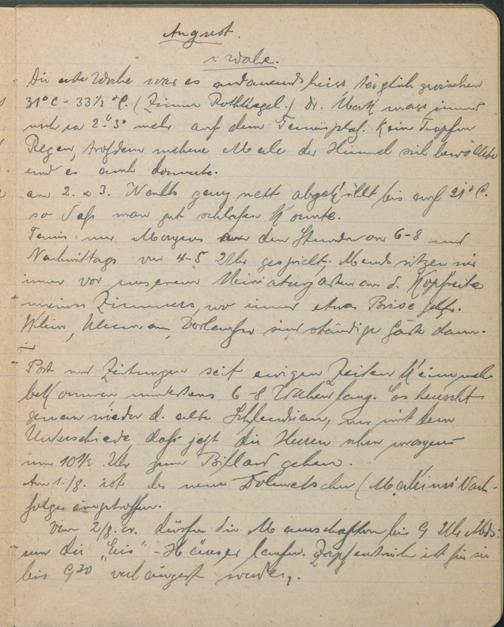 August.
1. Woche.
Die erste Woche war es andauernd heiss täglich zwischen
31°C - 33½°C. (Zimmer Rothkegel.) Dr. Marx mass immer
noch ca 2-3° mehr auf dem Tennisplatz. Kein Tropfen
Regen, trotzdem mehrere Male der Himmel sich bewölkte
und es auch donnerte.
am 2. u 3. Nachts ganz nett abgekühlt bis auf 21°C.
so daß man gut schlafen konnte.
Tennis nur Morgens den Stunden von 6-8 und
Nachmittags von 4-5 Uhr gespielt. Abends sitzen wir
immer vor unserem Miniaturgarten an d. Kopfseite
meines Zimmers, wo immer etwas Brise
Klein, sind ständige Gäste dann.
Post und Zeitungen seit ewigen Zeiten keine mehr
bekommen mindestens 6-8 Wochen lang. Es herrscht
genau wieder d. alte Schlendrian, nur mit dem
Unterschiede daß jetzt die Herren schon morgens
um 10½ Uhr zum Billard gehen.
Am 1./8. ist der neue Dolmetscher (Nach-
folger eingetroffen.
Vom 2/8. dürfen die Mannschaften bis 9 Uhr Abds.
um die "Eis"-Häuser laufen. Zapfenstreich ist für sie
bis 9³⁰ verlängert worden.